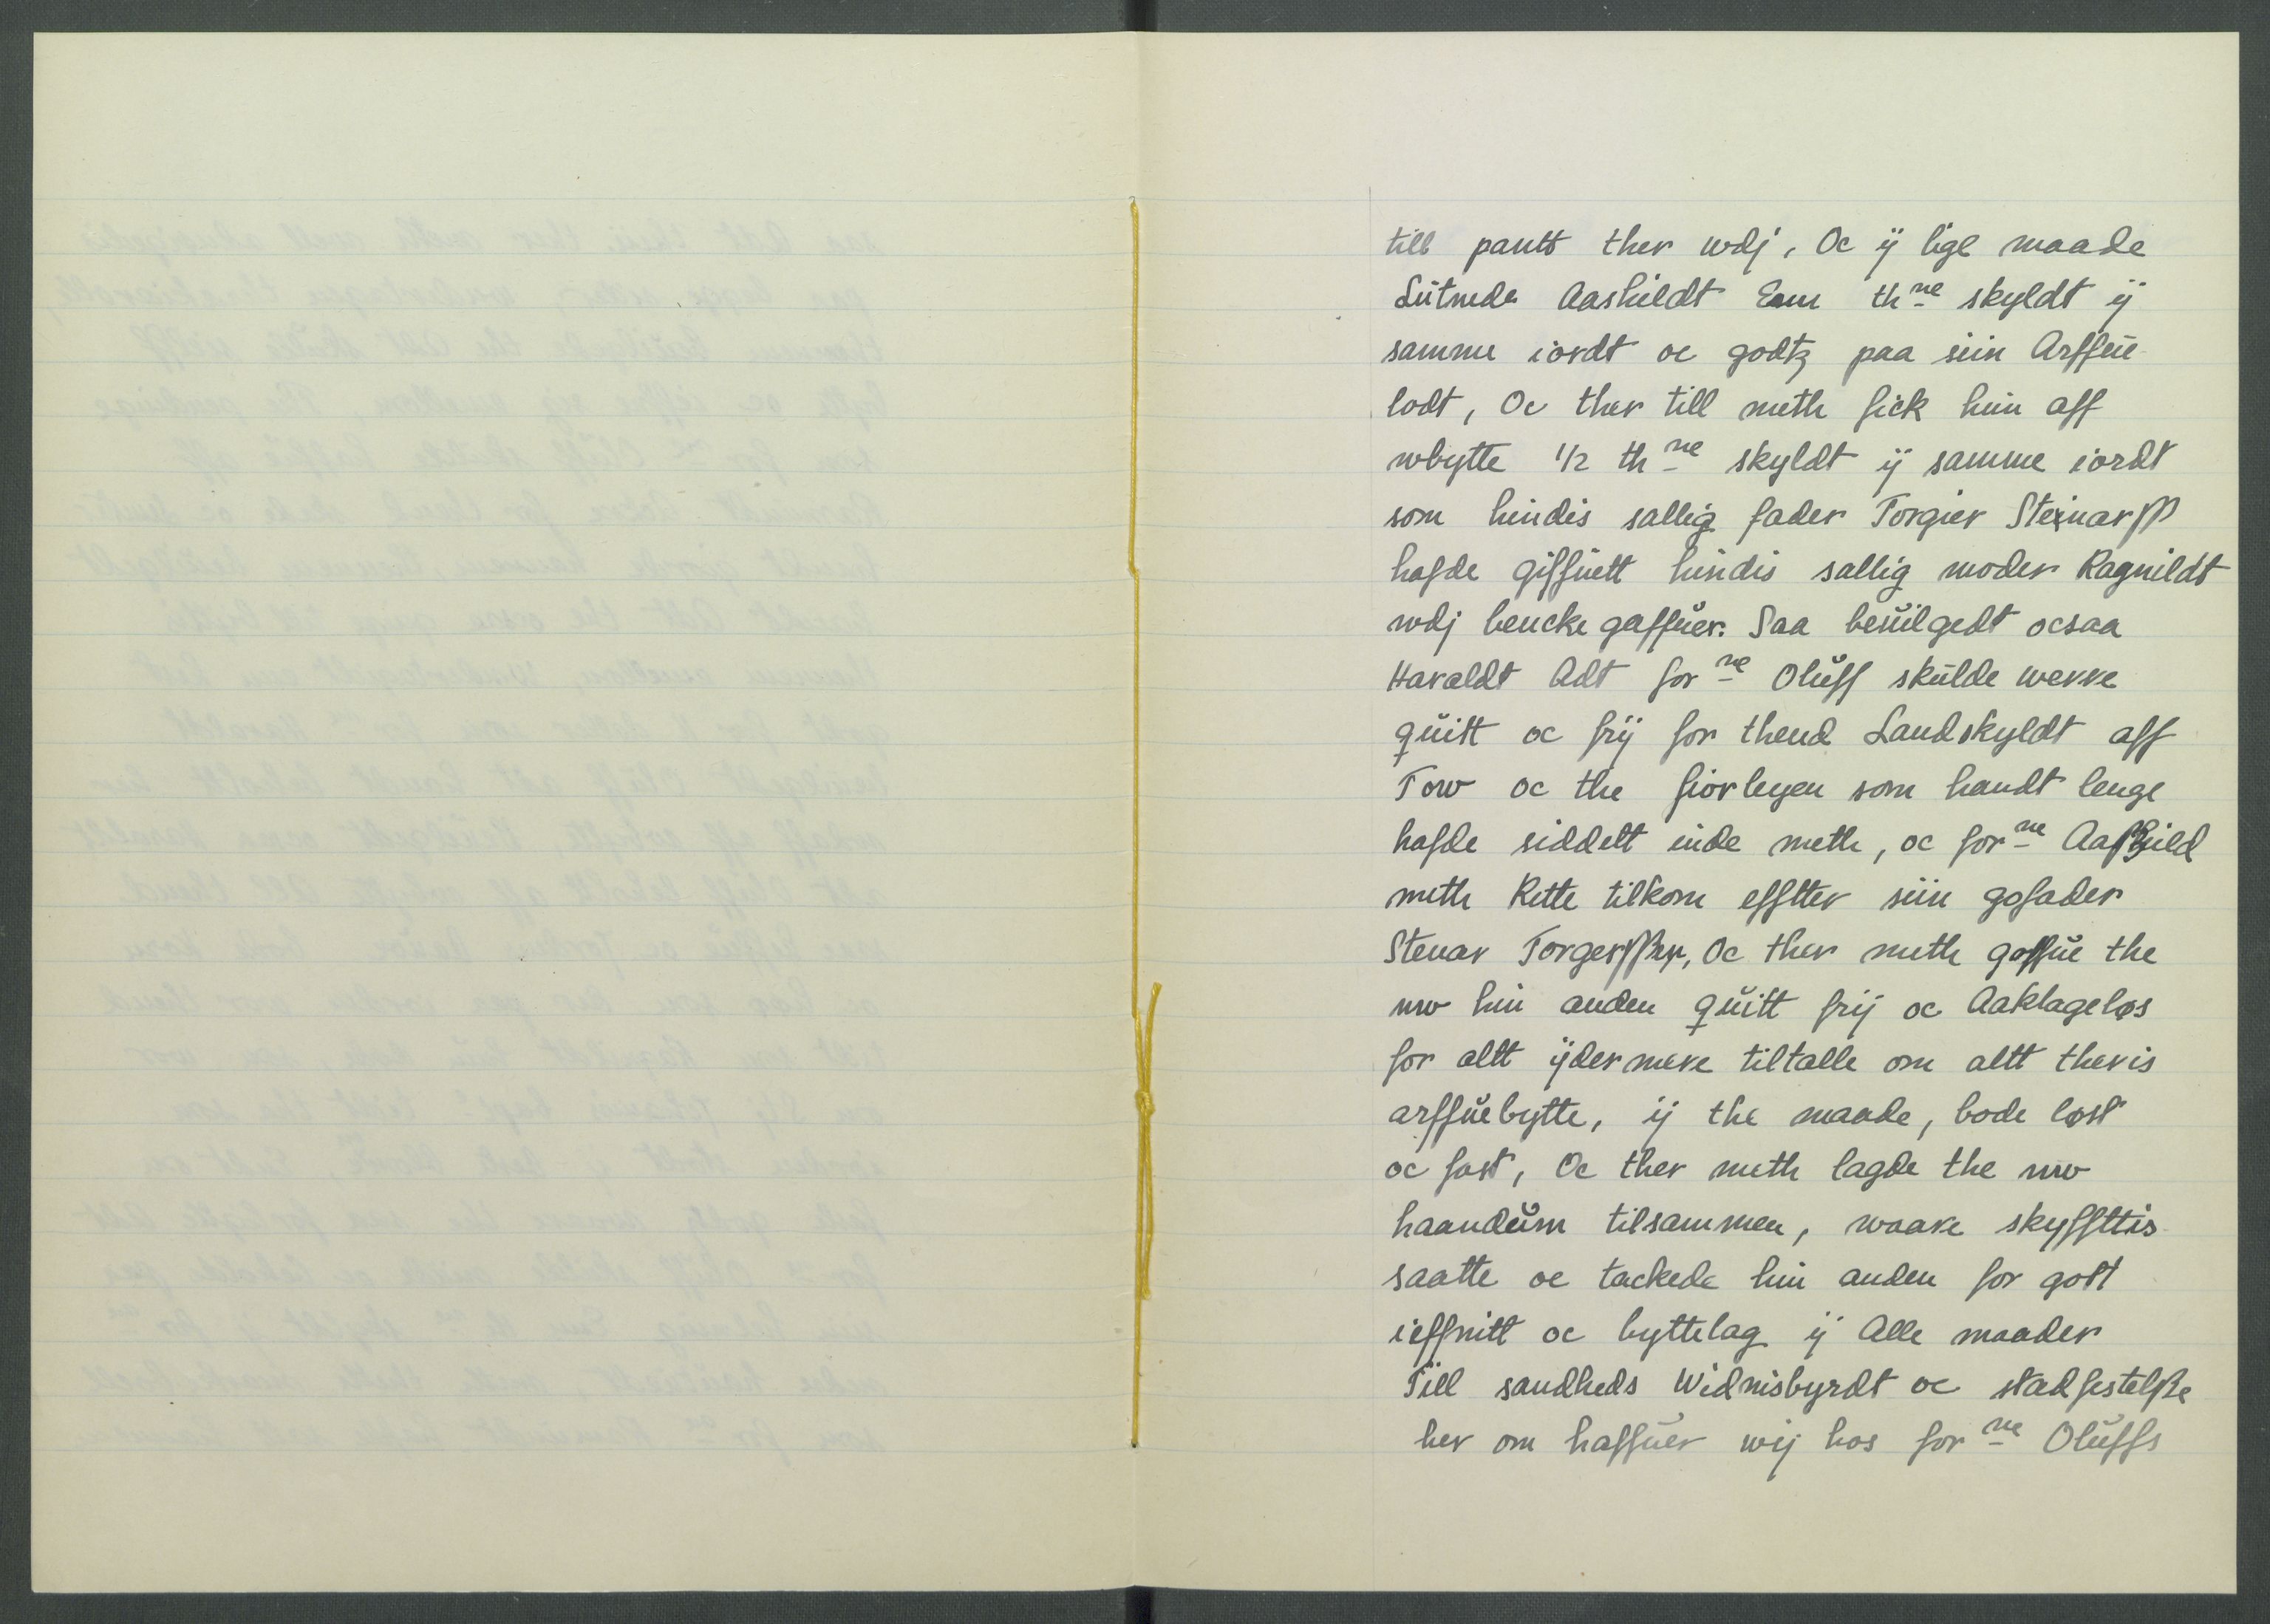 till pantt ther wdj, Oc ij lige maade
Lütnede Aashildt Een thne skyldt ij
samme iordt oc godtz paa siin Arffüe
lodt, Oc ther till meth fick hün aff
wbytte 1/2 thne skyldt ij samme iordt
som hindis sallig fader Torgier Steinarss
hafde giffüett hindis sallig moder Ragnildt
wdj bencke gaffüer. Saa beüilgedt ocsaa
Haraldt Adt forne Olüff skülde werre
qüitt oc frij for thend Landskyldt aff
Tow oc the fiorleyen som handt lenge
hafde siddett inde meth, oc forne Aaßhild
meth Rette tilkom effter siin gofader
Stenar Torgerßen, Oc ther meth gaffüe the
nw hin anden qüitt frij oc Aaklageløs
for altt ijdermere tiltalle om altt theris
arffüebytte, ij the maade, bode løst
oc fast, Oc ther meth lagde the nw
haandüm tilsammen, waare skyffttis
saatte oc tackede hin anden for gott
ieffnitt oc byttelag ij Alle maader
Till sandheds Widnisbyrdt oc stadfestelße
her om haffüer wij hos forne Olüffs